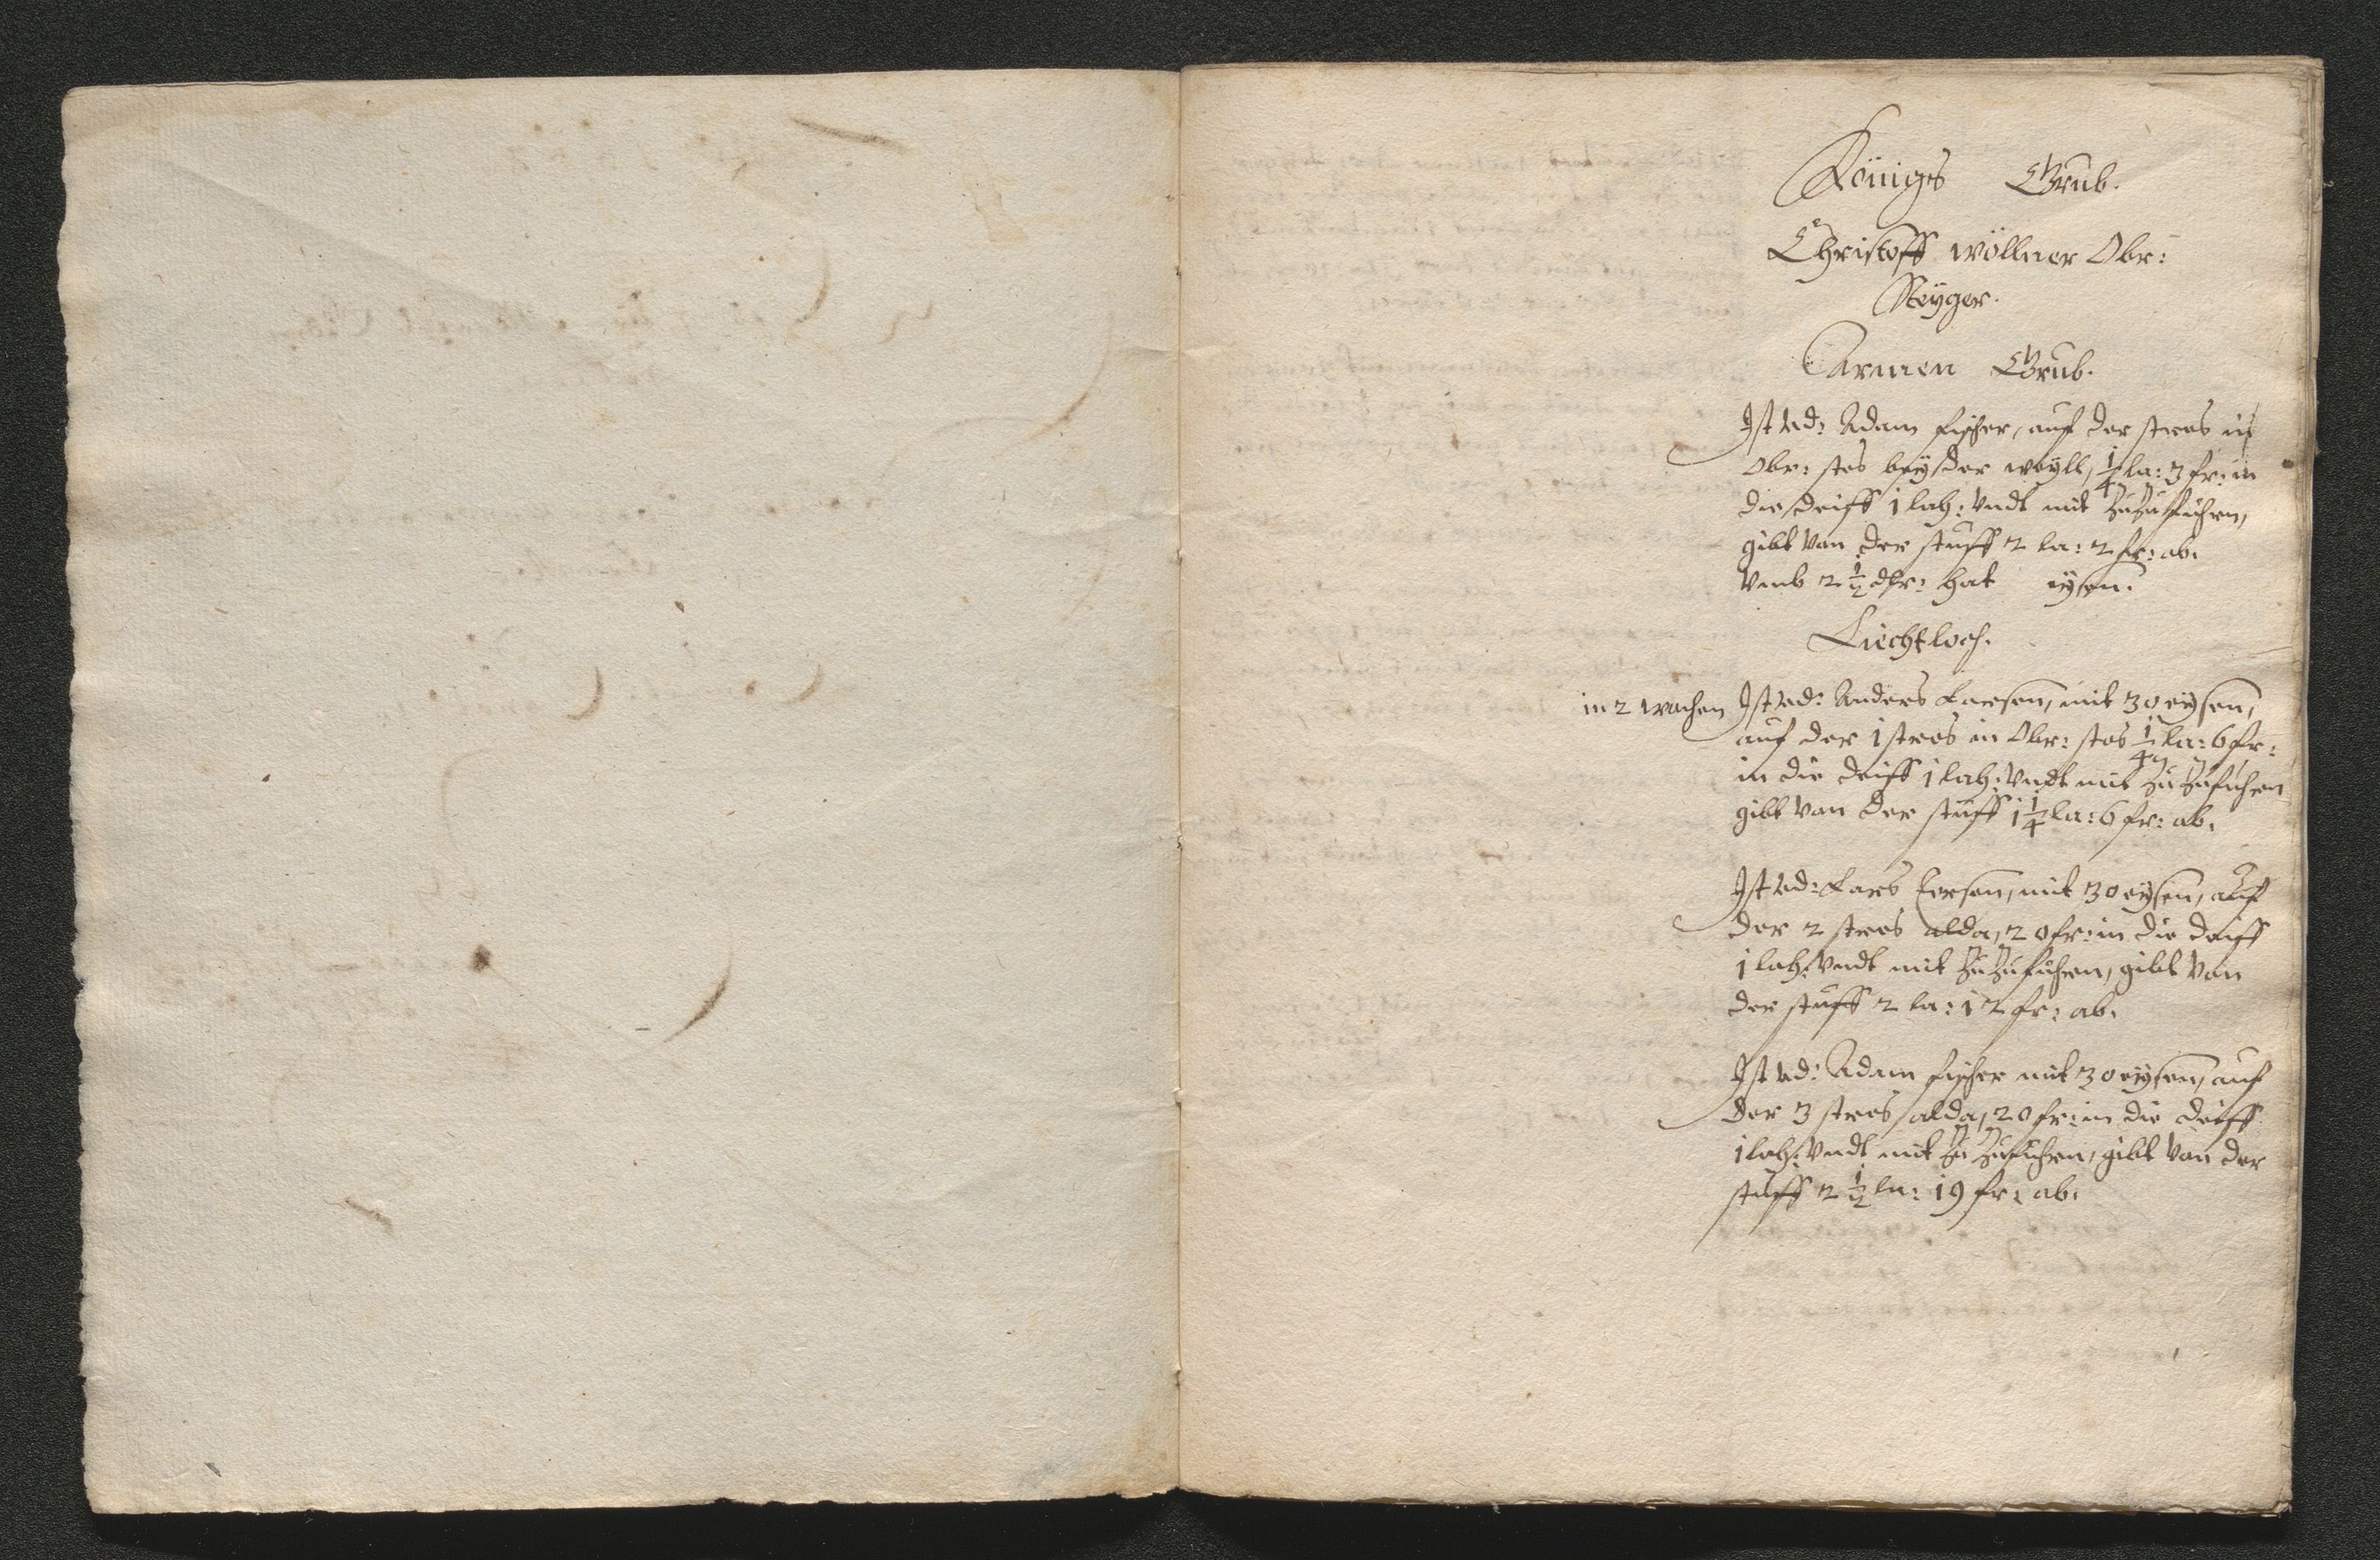 Königs Grub.
Christoff Wöllner Obr:
Steÿger.
Armen Grub.
Ist Vd: Adam fischer, auf der stros in
Obr: stos beÿ der weÿll, 1/4 la: 3 fr: in
die deiff 1 lah: Vndt mit zu zufuhren,
gibt Von der stuff 2 la: 2 fr: ab.
Vmb 2 1/2 dlr: hat eÿsen.
Liechtloch.
in 2 wochen Ist Vd: Anders Larsen, mit 30 eÿsen,
auf der 1 stros in Obr: stos 1/4 la: 6 fr:
in die deiff 1 lah: Vndt mit zu zufuhren
gibt Von der stuff 1 1/4 la: 6 fr: ab.
Ist Vd: Lars Eersen, mit 30 eÿsen, auf
der 2 stros alda, 20 fr: in die deiff
1 lah: Vndt mit zu zufuhren, gibt Von
der stuff 2 la: 12 fr: ab.
Ist Vd: Adam fischer mit 30 eÿsen, auf
der 3 stros alda, 20 fr: in die deiff
1 lah: Vndt mit zu zufuhren, gibt Von der
stuff 2 1/2 la: 19 fr: ab.